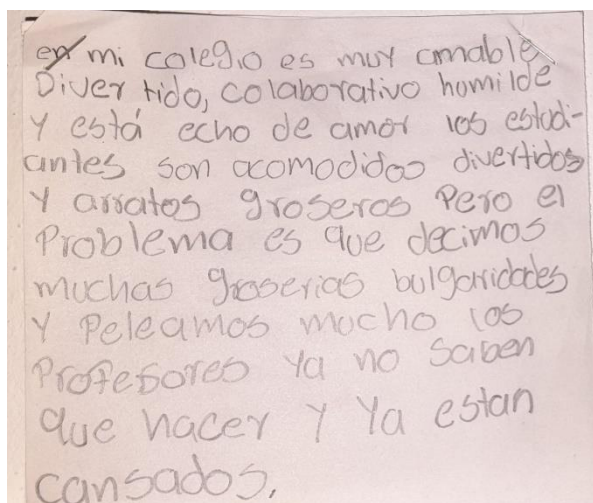 en mi colegio es muy amable
Divertido, colaborativo homilde
y está echo de amor los estudi-
antes son acomodidos divertidos
y arratos groseros Pero el
Problema es que decimos
muchas groserias bulgaridades
y Peleamos mucho los
Profesores ya no saben
que hacer y ya estan
cansados,